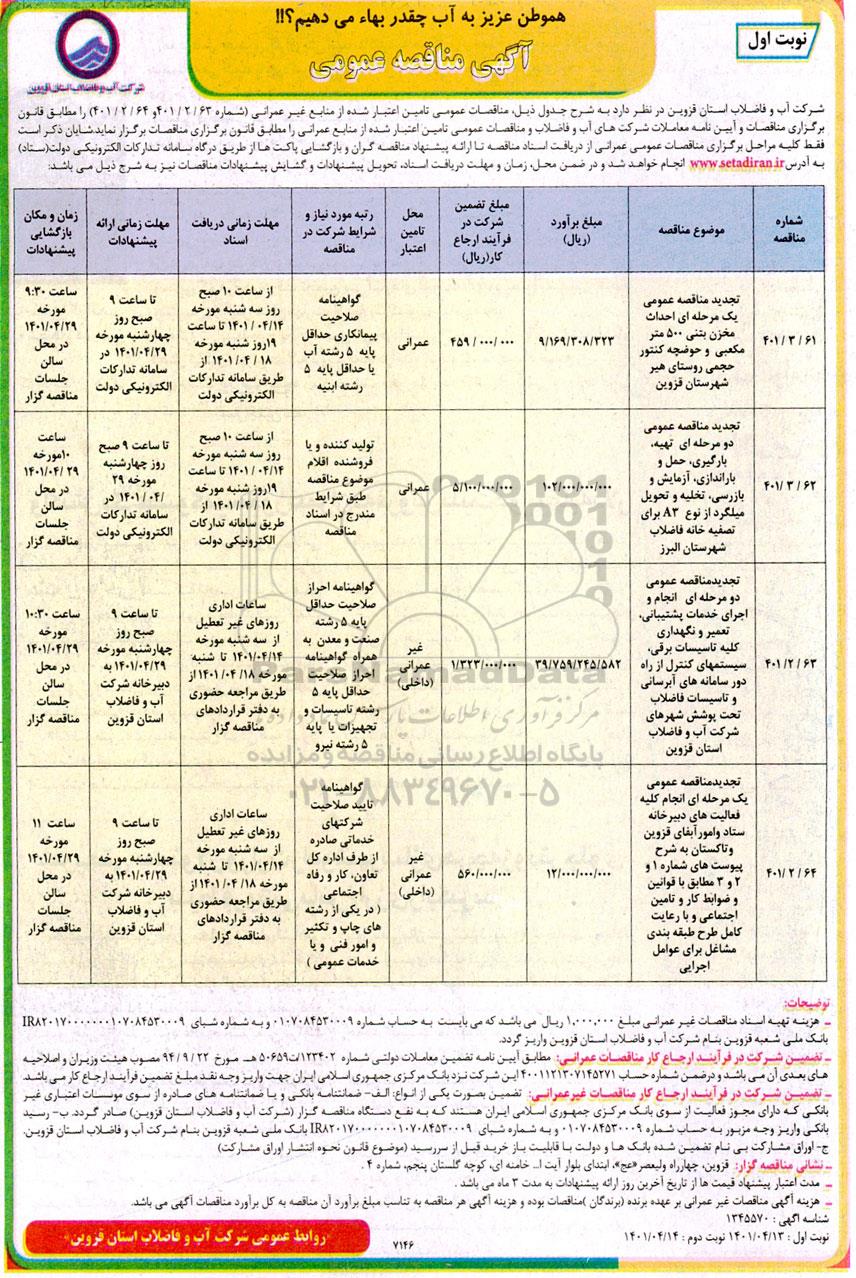 هموطن عزیز به آب چقدر بهاء می دهیم؟!!
آگهی مناقصه عمومی
نوبت اول
شرکت آب و فاضلاب استان قزوین
شرکت آب و فاضلاب استان قزوین در نظر دارد به شرح جدول ذیل، مناقصات عمومی تامین اعتبار شده از منابع غیر عمرانی (شماره ۶۳ / ۲ / ۴۰۱و ۶۴ / ۲ / ۴۰۱) را مطابق قانون
برگزاری مناقصات و آیین نامه معاملات شرکت های آب و فاضلاب و مناقصات عمومی تامین اعتبار شده از منابع عمرانی را مطابق قانون برگزاری مناقصات برگزار نماید.شایان ذکر است
فقط کلیه مراحل برگزاری مناقصات عمومی عمرانی از دریافت اسناد مناقصه تا ارائه پیشنهاد مناقصه گران و بازگشایی پاکت ها از طریق درگاه سامانه تدارکات الکترونیکی دولت(ستاد)
به آدرس www.setadiran.ir انجام خواهد شد و در ضمن محل، زمان و مهلت دریافت اسناد، تحویل پیشنهادات و گشایش پیشنهادات مناقصات نیز به شرح ذیل می باشد:
شماره
مناقصه
موضوع مناقصه
مبلغ برآورد
(ریال)
مبلغ تضمین
شرکت در
فرآیند ارجاع
کار(ریال)
محل
تامین
اعتبار
رتبه مورد نیاز و
شرایط شرکت در
مناقصه
مهلت زمانی دریافت
اسناد
مهلت زمانی ارائه
پیشنهادات
زمان و مکان
بازگشایی
پیشنهادات
۶۱ / ۳ / ۴۰۱
تجدید مناقصه عمومی
یک مرحله ای احداث
مخزن بتنی ۵۰۰ متر
مکعبی و حوضچه کنتور
حجمی روستای هیر
شهرستان قزوین
۹/۱۶۹/۳۰۸/۳۲۳
۴۵۹ / ۰۰۰/ ۰۰۰
عمرانی
گواهینامه
صلاحیت
پیمانکاری حداقل
پایه ۵ رشته آب
یا حداقل پایه ۵
رشته ابنیه
از ساعت ۱۰ صبح
روز سه شنبه مورخه
۰۴/۱۴ / ۱۴۰۱ تا ساعت
۱۹روز شنبه مورخه
۱۸ / ۰۴ / ۱۴۰۱ از
طریق سامانه تدارکات
الکترونیکی دولت
تا ساعت ۹
صبح روز
چهارشنبه مورخه
۱۴۰۱/۰۴/۲۹ در
سامانه تدارکات
الکترونیکی دولت
ساعت ۹:۳۰
مورخه
۱۴۰۱/۰۴/۲۹
در محل
سالن
جلسات
مناقصه گزار
۶۲ / ۳ / ۴۰۱
تجدید مناقصه عمومی
دو مرحله ای تهیه،
بارگیری، حمل و
باراندازی، آزمایش و
بازرسی، تخلیه و تحویل
میلگرد از نوع A۳ برای
تصفیه خانه فاضلاب
شهرستان البرز
۱۰۲/۰۰۰/۰۰۰/۰۰۰
۵/۱۰۰/۰۰۰/۰۰۰
عمرانی
تولید کننده و یا
فروشنده اقلام
موضوع مناقصه
طبق شرایط
مندرج در اسناد
مناقصه
از ساعت ۱۰ صبح
روز سه شنبه مورخه
۰۴/۱۴ / ۱۴۰۱ تا ساعت
۱۹روز شنبه مورخه
۱۸ / ۰۴ / ۱۴۰۱ از
طریق سامانه تدارکات
الکترونیکی دولت
تا ساعت ۹ صبح
روز چهارشنبه
مورخه ۲۹
/۰۴ / ۱۴۰۱ در
سامانه تدارکات
الکترونیکی دولت
ساعت
۱۰مورخه
۲۹ /۱۴۰۱/۰۴
در محل
سالن
جلسات
مناقصه گزار
۶۳ / ۲ / ۴۰۱
تجدیدمناقصه عمومی
دو مرحله ای انجام و
اجرای خدمات پشتیبانی،
تعمیر و نگهداری
کلیه تاسیسات برقی،
سیستمهای کنترل از راه
دور سامانه های آبرسانی
و تاسیسات فاضلاب
تحت پوشش شهرهای
شرکت آب و فاضلاب
استان قزوین
۳۹/۷۵۹/۲۴۵/۵۸۲
۱/۳۲۳/۰۰۰/۰۰۰
غیر
عمرانی
(داخلی)
گواهینامه احراز
صلاحیت حداقل
پایه ۵ رشته
صنعت و معدن به
همراه گواهینامه
احراز صلاحیت
حداقل پایه ۵
رشته تاسیسات و
تجهیزات یا پایه
۵ رشته نیرو
ساعات اداری
روزهای غیر تعطیل
از سه شنبه مورخه
۱۴۰۱/۰۴/۱۴ تا شنبه
مورخه ۱۸/ ۱۴۰۱/۰۴ از
طریق مراجعه حضوری
به دفتر قراردادهای
مناقصه گزار
تا ساعت ۹
صبح روز
چهارشنبه مورخه
۱۴۰۱/۰۴/۲۹ به
دبیرخانه شرکت
آب و فاضلاب
استان قزوین
ساعت ۱۰:۳۰
مورخه
۱۴۰۱/۰۴/۲۹
در محل
سالن
جلسات
مناقصه گزار
۶۴ / ۲ / ۴۰۱
تجدیدمناقصه عمومی
یک مرحله ای انجام کلیه
فعالیت های دبیرخانه
ستاد وامورآبفای قزوین
وتاکستان به شرح
پیوست های شماره ۱ و
۲ و ۳ مطابق با قوانین
و ضوابط کار و تامین
اجتماعی و با رعایت
کامل طرح طبقه بندی
مشاغل برای عوامل
اجرایی
۱۲/۰۰۰/۰۰۰/۰۰۰
۵۶۰/۰۰۰/۰۰۰
غیر
عمرانی
(داخلی)
گواهینامه
تایید صلاحیت
شرکتهای
خدماتی صادره
از طرف اداره کل
تعاون، کار و رفاه
اجتماعی
( در یکی از رشته
های چاپ و تکثیر
و امور فنی و یا
خدمات عمومی )
ساعات اداری
روزهای غیر تعطیل
از سه شنبه مورخه
۱۴۰۱/۰۴/۱۴ تا شنبه
مورخه ۱۸/ ۱۴۰۱/۰۴ از
طریق مراجعه حضوری
به دفتر قراردادهای
مناقصه گزار
تا ساعت ۹
صبح روز
چهارشنبه مورخه
۱۴۰۱/۰۴/۲۹ به
دبیرخانه شرکت
آب و فاضلاب
استان قزوین
ساعت ۱۱
مورخه
۱۴۰۱/۰۴/۲۹
در محل
سالن
جلسات
مناقصه گزار
ParsNamadData
مرکز فرآوری اطلاعات پارس نماد داده
پایگاه اطلاع رسانی مناقصه و مزایده
۰۲۱-۸۸۳۴۹۶۷۰-۵
توضیحات:
ـ هزینه تهیه اسناد مناقصات غیر عمرانی مبلغ ۱,۰۰۰,۰۰۰ ریال می باشد که می بایست به حساب شماره ۰۱۰۷۰۸۴۵۳۰۰۰۹ و به شماره شبای IR۸۲۰۱۷۰۰۰۰۰۰۰۱۰۷۰۸۴۵۳۰۰۰۹
بانک ملی شعبه قزوین بنام شرکت آب و فاضلاب استان قزوین واریز گردد.
ـ تضمین شرکت در فرآیند ارجاع کار مناقصات عمرانی: مطابق آیین نامه تضمین معاملات دولتی شماره ۱۲۳۴۰۲/ت۵۰۶۵۹ هـ مورخ ۹۴/۹/۲۲ مصوب هیئت وزیران و اصلاحیه
های بعدی آن می باشد و درضمن شماره حساب ۴۰۰۱۱۲۱۳۰۷۱۴۵۲۷۱ این شرکت نزد بانک مرکزی جمهوری اسلامی ایران جهت واریز وجه نقد مبلغ تضمین فرآیند ارجاع کار می باشد.
ـ تضمین شرکت در فرآیند ارجاع کار مناقصات غیرعمرانی: تضمین بصورت یکی از انواع: الف- ضمانتنامه بانکی و یا ضمانتنامه های صادره از سوی موسسات اعتباری غیر
بانکی که دارای مجوز فعالیت از سوی بانک مرکزی جمهوری اسلامی ایران هستند که به نفع دستگاه مناقصه گزار (شرکت آب و فاضلاب استان قزوین) صادر گردد. ب- رسید
بانکی واریز وجه مزبور به حساب شماره ۰۱۰۷۰۸۴۵۳۰۰۰۹ و به شماره شبای IR۸۲۰۱۷۰۰۰۰۰۰۰۱۰۷۰۸۴۵۳۰۰۰۹ بانک ملی شعبه قزوین بنام شرکت آب و فاضلاب استان قزوین.
ج- اوراق مشارکت بی نام تضمین شده بانک ها و دولت با قابلیت باز خرید قبل از سررسید (موضوع قانون نحوه انتشار اوراق مشارکت)
ـ نشانی مناقصه گزار: قزوین، چهارراه ولیعصر«عج»، ابتدای بلوار آیت ا... خامنه ای، کوچه گلستان پنجم، شماره ۴ .
ـ مدت اعتبار پیشنهاد قیمت ها از تاریخ آخرین روز ارائه پیشنهادات به مدت ۳ ماه می باشد .
ـ هزینه آگهی مناقصات غیر عمرانی بر عهده برنده (برندگان )مناقصات بوده و هزینه آگهی هر مناقصه به تناسب مبلغ برآورد آن مناقصه به کل برآورد مناقصات آگهی می باشد.
شناسه آگهی : ۱۳۴۵۵۷۰
نوبت اول : ۱۴۰۱/۰۴/۱۳ نوبت دوم : ۱۴۰۱/۰۴/۱۴
۷۱۴۶
روابط عمومی شرکت آب و فاضلاب استان قزوین